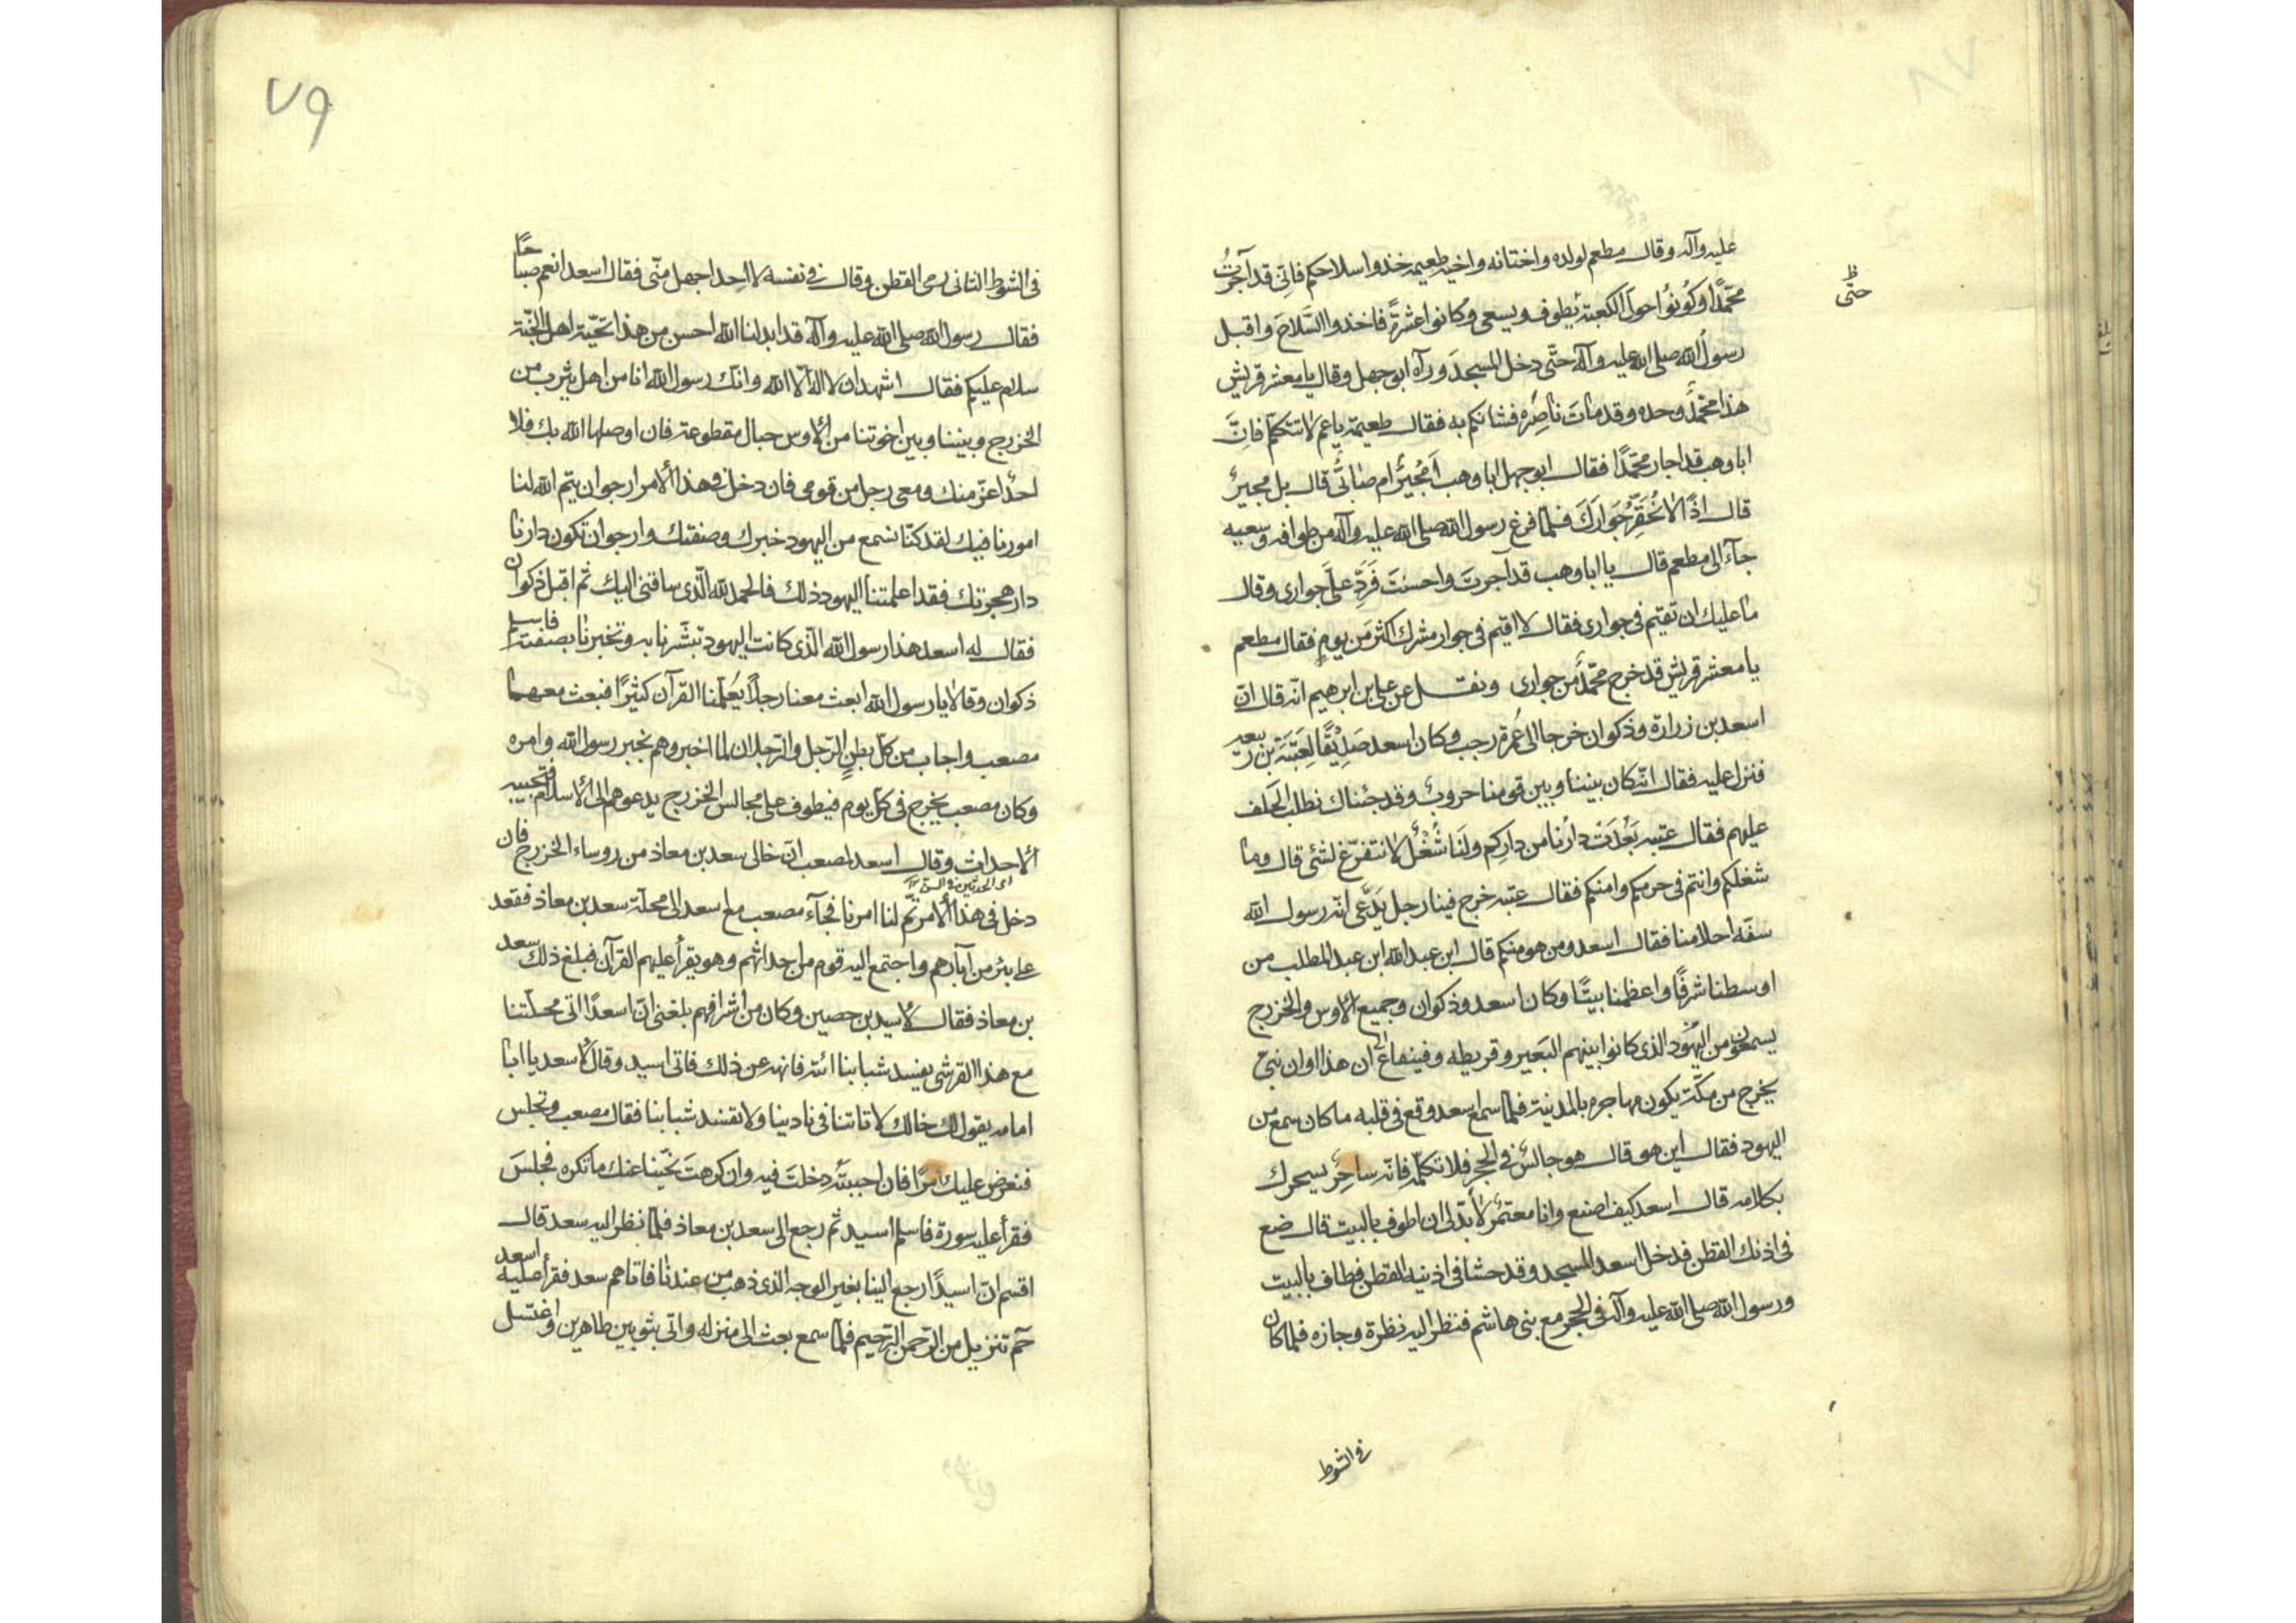 عليه وآله وقال مطعم لولده واختانه واخيه طعيمه خذوا سلاحكم فانّى قد آجرتُ
محمّدًا وكُونُوا حولَ الكعبة يطوف ويسعى وكانوا عشرةً فاخذوا السّلاحَ واقبل
حتّى
ظ
رسولُ الله صلى الله عليه وآله حتّى دخل المسجدَ ورآه ابوجهل وقال يا معشر قريش
هذا محمّدٌ وحده وقد ماتَ ناصِرُه فشانكم به فقال طعيمة يا عم لا تتكلم فانّ
ابا وهب قد اجار محمّدًا فقال ابوجهل ابا وهب اَمُجيرٌ ام صابئٌ قال بل مجيرٌ
قال اذًا لا نُخفِرُ جَوارَك فلمّا فرغ رسول الله صلى الله عليه وآله من طوافه وسعيه
جآء الى مطعم قال يا ابا وهب قد آجرتَ واحسنتَ فَرَدِّ علىَ جوارى وقال
ما عليك ان تقيم فى جوارى فقال لا اقيم فى جوار مشرك اكثرَ من يومٍ فقال مطعم
يا معشر قريش قد خرج محمّدٌ من جوارى ونقل عن على بن ابرهيم انّه قال انّ
اسعد بن زرارة وذكوان خرجا الى عُمرة رجب وكان اسعد صَدِيقًا لِعَتبَة بن ربيعه
فنزل عليه فقال انّه كان بيننا وبين قومنا حروبٌ وقد جئناك نطلب الحَلف
عليهم فقال عتبه بَعُدَتْ دارُنا من دارِكم ولَنا شُغْلٌ لا نتفرّغ لشئى قال وما
شغلكم وانتم فى حرمكم وامنكم فقال عتبه خرج فينا رجل يَدَّعى انّه رسول الله
سفّه احلامنا فقال اسعد ومن هو منكم قال ابن عبد الله ابن عبد المطلب من
اوسطنا شرفًا واعظمنا بيتًا وكان اسعد وذكوان وجميع الاوس والخزرج
يسمعون من اليهُود الذى كانوا بينهم النضير وقريظه وقينقاع ان هذا اوان نبىّ
يخرج من مكّة يكون مهاجره بالمدينة فلمّا سمع اسعد وقع فى قلبه ما كان سمع من
اليهود فقال اين هو قال هو جالسٌ فى الحجر فلا تكلّمه فانّه ساحِرٌ يسحرك
بكلامه قال اسعد كيف اصنع وانا معتمرٌ لابدّ لى ان اطوف بالبيت قال ضع
فى اذنك القطن فدخل اسعد المسجد وقد حشا فى اذنيه القطن فطاف بالبيت
ورسول الله صلى الله عليه وآله فى الحجر مع بنى هاشم فنظر اليه نظرة وجازه فلما كان
فى الشوط
٧٩
فى الشوط الثانى رمى القطن وقال فى نفسه لا احِد اجهل منّى فقال اسعد انعم صباحًا
فقال رسول الله صلى الله عليه وآله قد ابدلنا الله احسن من هذا تحيّة اهل الجنّة
سلام عليكم فقال اشهد ان لا اله الّا الله وانّك رسول الله انا من اهل يثرب من
الخزرج وبيننا وبين اخوتنا من الاوس حبال مقطوعة فان اوصلها الله بك فلا
احدٌ اعزّ منك ومعى رجل من قومى فان دخل فى هذا الامر ارجو ان يتم الله لنا
امورنا فيك لقد كنّا نسمع من اليهود خبرك وصفتك وارجو ان تكون دارنا
دار هجرتك فقد اعلمتنا اليهود ذلك فالحمد لله الّذى ساقنى اليك ثم اقبل ذكوان
فقال له اسعد هذا رسول الله الّذى كانت اليهود تبشّرنا به وتخبرنا بصفته فاسلم
ذكوان وقالا يا رسول الله ابعث معنا رجلًا يُعلّمنا القرآن كثيرًا فبعث معهما
مصعب واجاب من كلّ بطنٍ الرّجل والرّجلان لما اخبروهم بخبر رسول الله وامره
وكان مصعب يخرج فى كلّ يوم فيطوف على مجالس الخزرج يدعوهم الى الاسلام فتجيبه
الاحداث وقال اسعد لمصعب انّ خالى سعد بن معاذ من روساء الخزرج فان
دخل فى هذا الامر تمّ لنا امرنا فجآء مصعب مع اسعد الى محلّة سعد بن معاذ فقعد
على بئر من آبارهم واجتمع اليه قوم من احداثهم وهو يقرأ عليهم القرآن فبلغ ذلك سعد
بن معاذ فقال لاسيد بن حصين وكان من اشرافهم بلغنى انّ اسعدًا اتى محلّتنا
مع هذا القرشى يفسد شبابنا ائته فانهه عن ذلك فاتى اسيد وقال لاسعد يا ابا
امامه يقول لك خالك لا تاتنا فى نادينا ولا تفسد شبابنا فقال مصعب وتجلس
فنعرض عليك امرًا فان احببتَه دخلتَ فيه وان كرهتَ نحّينا عنك ما تكره فجلسَ
فقرأ عليه سورة فاسلم اسيد ثم رجع الى سعد بن معاذ فلمّا نظر اليه سعد قال
اقسم انّ اسيدًا رجع الينا بغير الوجه الذى ذهب من عندنا فاتاهم سعد فقرأ عليه اسعد
حٓم تنزيل من الرّحمن الرّحيم فلمّا سمع بعث الى منزله واتى بثوبين طاهرين واغتسل